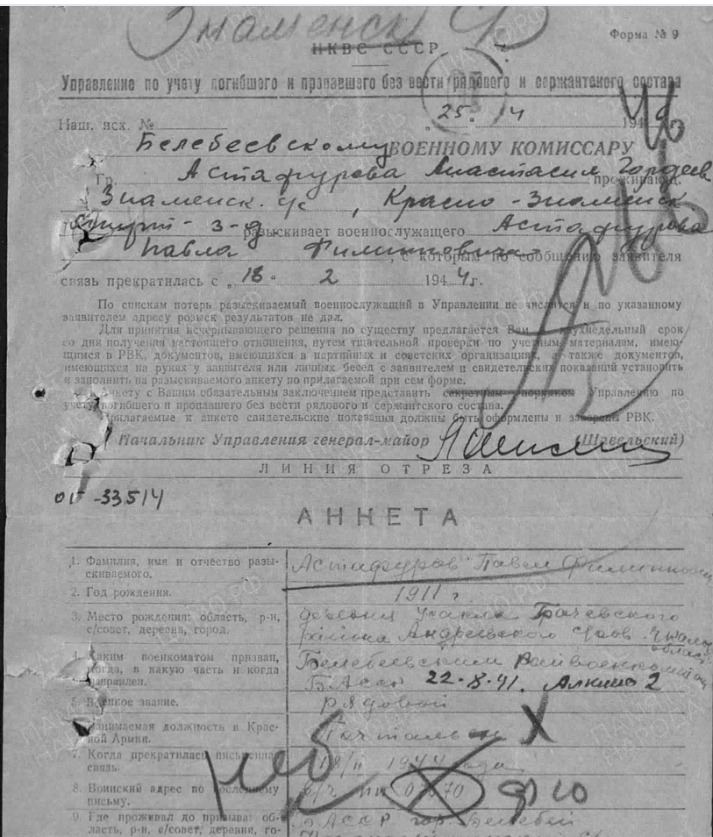 Знаменск
Форма № 9
НКВС СССР
Управление по учету погибшего и пропавшего без вести рядового и сержантского состава
25. 14
Наш. исх. № 194
Белебеевскому ВОЕННОМУ КОМИССАРУ
Гр. Астафурова Анастасия Гордеев
проживающ.
Знаменск. ул , Красно-Знаменск
Спирт-з-д. разыскивает военнослужащего Астафурова
Павла , с которым по сообщению заявителя
связь прекратилась с „18" 2 1944г.
По спискам потерь разыскиваемый военнослужащий в Управлении не числится и по указанному
заявителем адресу розыск результатов не дал.
Для принятия исчерпывающего решения по существу предлагается Вам в двухнедельный срок
со дня получения настоящего отношения, путем тщательной проверки по учетным материалам, имею-
щимся в РВК, документов, имеющихся в партийных и советских организациях, а также документов,
имеющихся на руках у заявителя или личных бесед с заявителем и свидетельских показаний установить
и заполнить на разыскиваемого анкету по прилагаемой при сем форме.
Анкету с Вашим обязательным заключением представить секретным порядком Управлению по
учету погибшего и пропавшего без вести рядового и сержантского состава.
Прилагаемые к анкете свидетельские показания должны быть оформлены и заверены РВК.
Начальник Управления генерал-майор (Шавельский)
ЛИНИЯ ОТРЕЗА
-33514
АНКЕТА
1. Фамилия, имя и отчество разы-
скиваемого.
Астафуров Павел
2. Год рождения.
1911 г.
3. Место рождения: область, р-н,
с/совет, деревня, город.
деревня Грачевского
района Андреевского
4. Каким военкоматом призван,
когда, в какую часть и когда
направлен.
Белебеевским Райвоенкоматом
БАССР 22-8-41. Алкино 2
5. Военное звание.
рядовой
Занимаемая должность в Крас-
ной Армии.
Почтальон
7. Когда прекратилась письменная
связь.
18/II 1944 года
8. Воинский адрес по последнему
письму.
9. Где проживал до призыва: об-
ласть, р-н, с/совет, деревня, го-
БАССР гор. Белебей